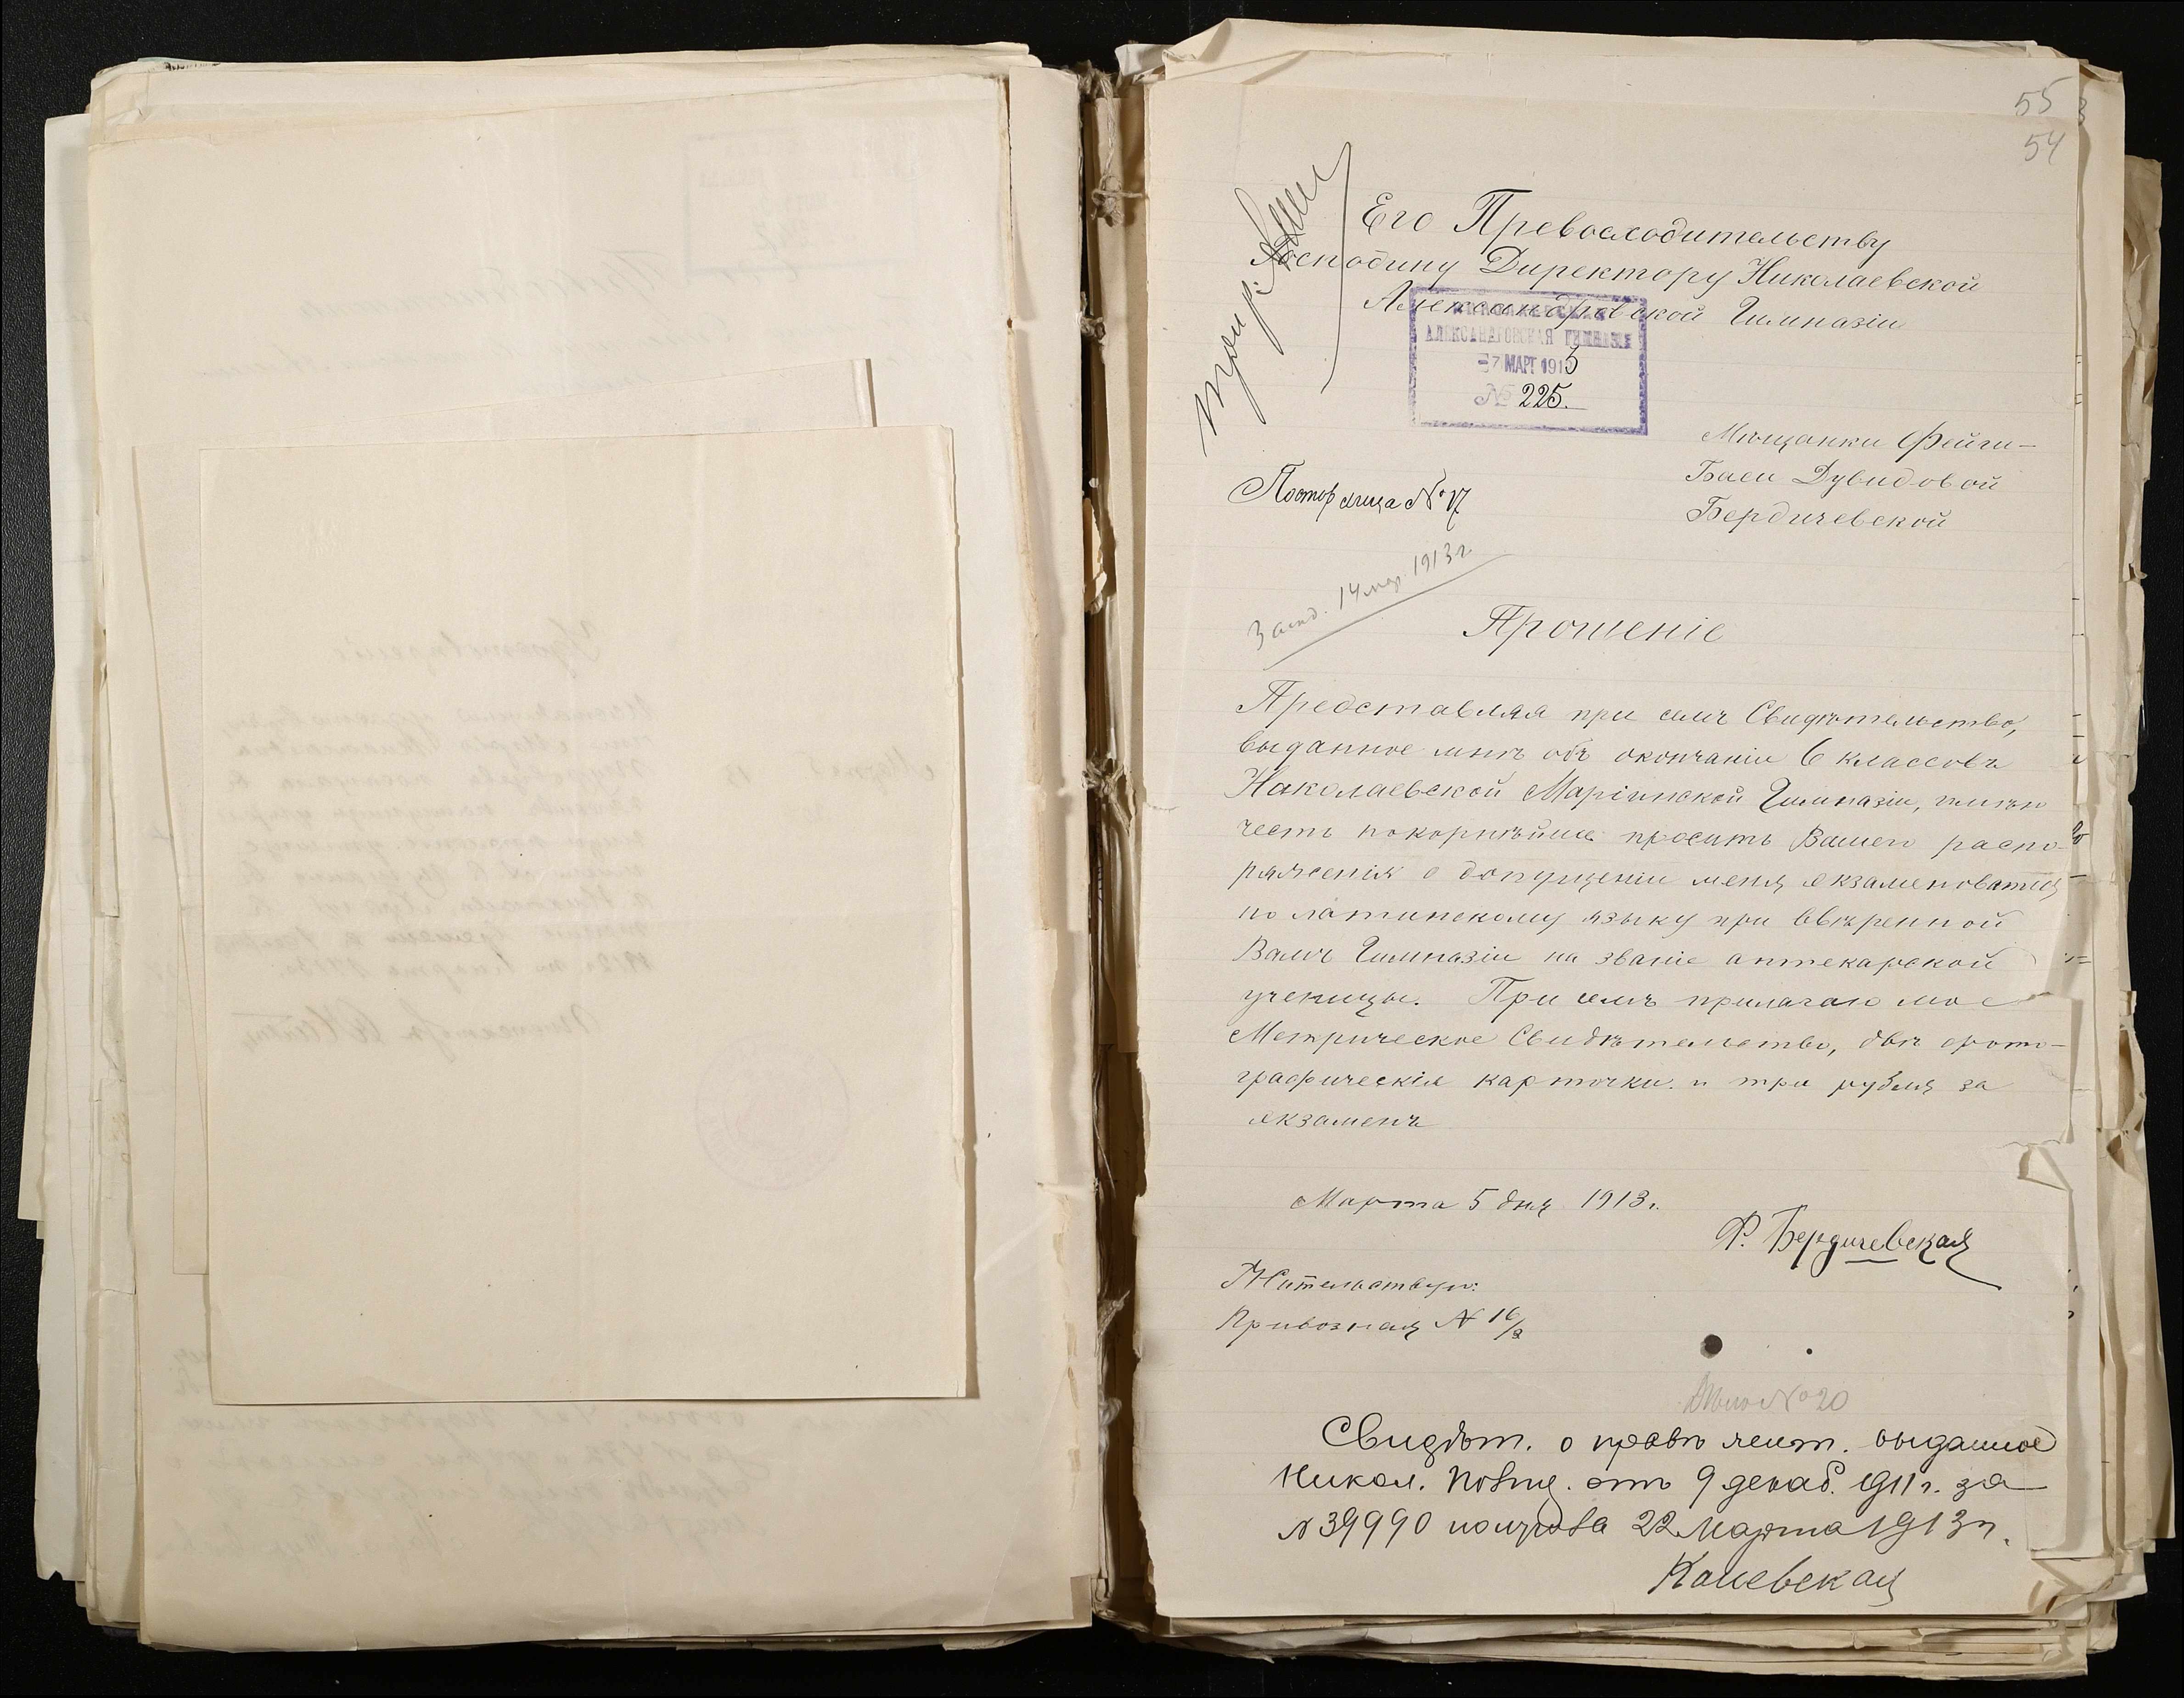 55
54
Его Превосходительству
Господину Директору Николаевской
Александровской Гимназіи
НИКОЛАЕВСКАЯ
АЛЕКСАНДРОВСКАЯ ГИМНАЗІЯ
-7 МАРТ 1913
№ 225.
Мѣщанки Фейги-
Баси Дувидовой
Бердичевской
№ 17
14 мар. 1913 г.
Прошеніе
Представляя при семъ Свидѣтельство,
выданное мнѣ объ окончаніи 6 классовъ
Николаевской Маріинской Гимназіи, имѣю
честь покорнѣйше просить Вашего распо-
ряженія о допущеніи меня екзаменоватися
по латинскому языку при ввѣренной
Вамъ Гимназіи на званіе аптекарской
ученицы. При семъ прилагаю мое
Метрическое Свидѣтельство, двѣ фото-
графическія карточки и три рубля за
екзаменъ
Марта 5 дня 1913 г.
Ф. Бердичевская
Жительствую:
Привозная №
№ 20
Свидѣт. о правѣ жит. выданное
Никол. Полиц. отъ 9 декаб. 1911 г. за
№ 39990 получила 22 Марта 1913 г.
Каневская